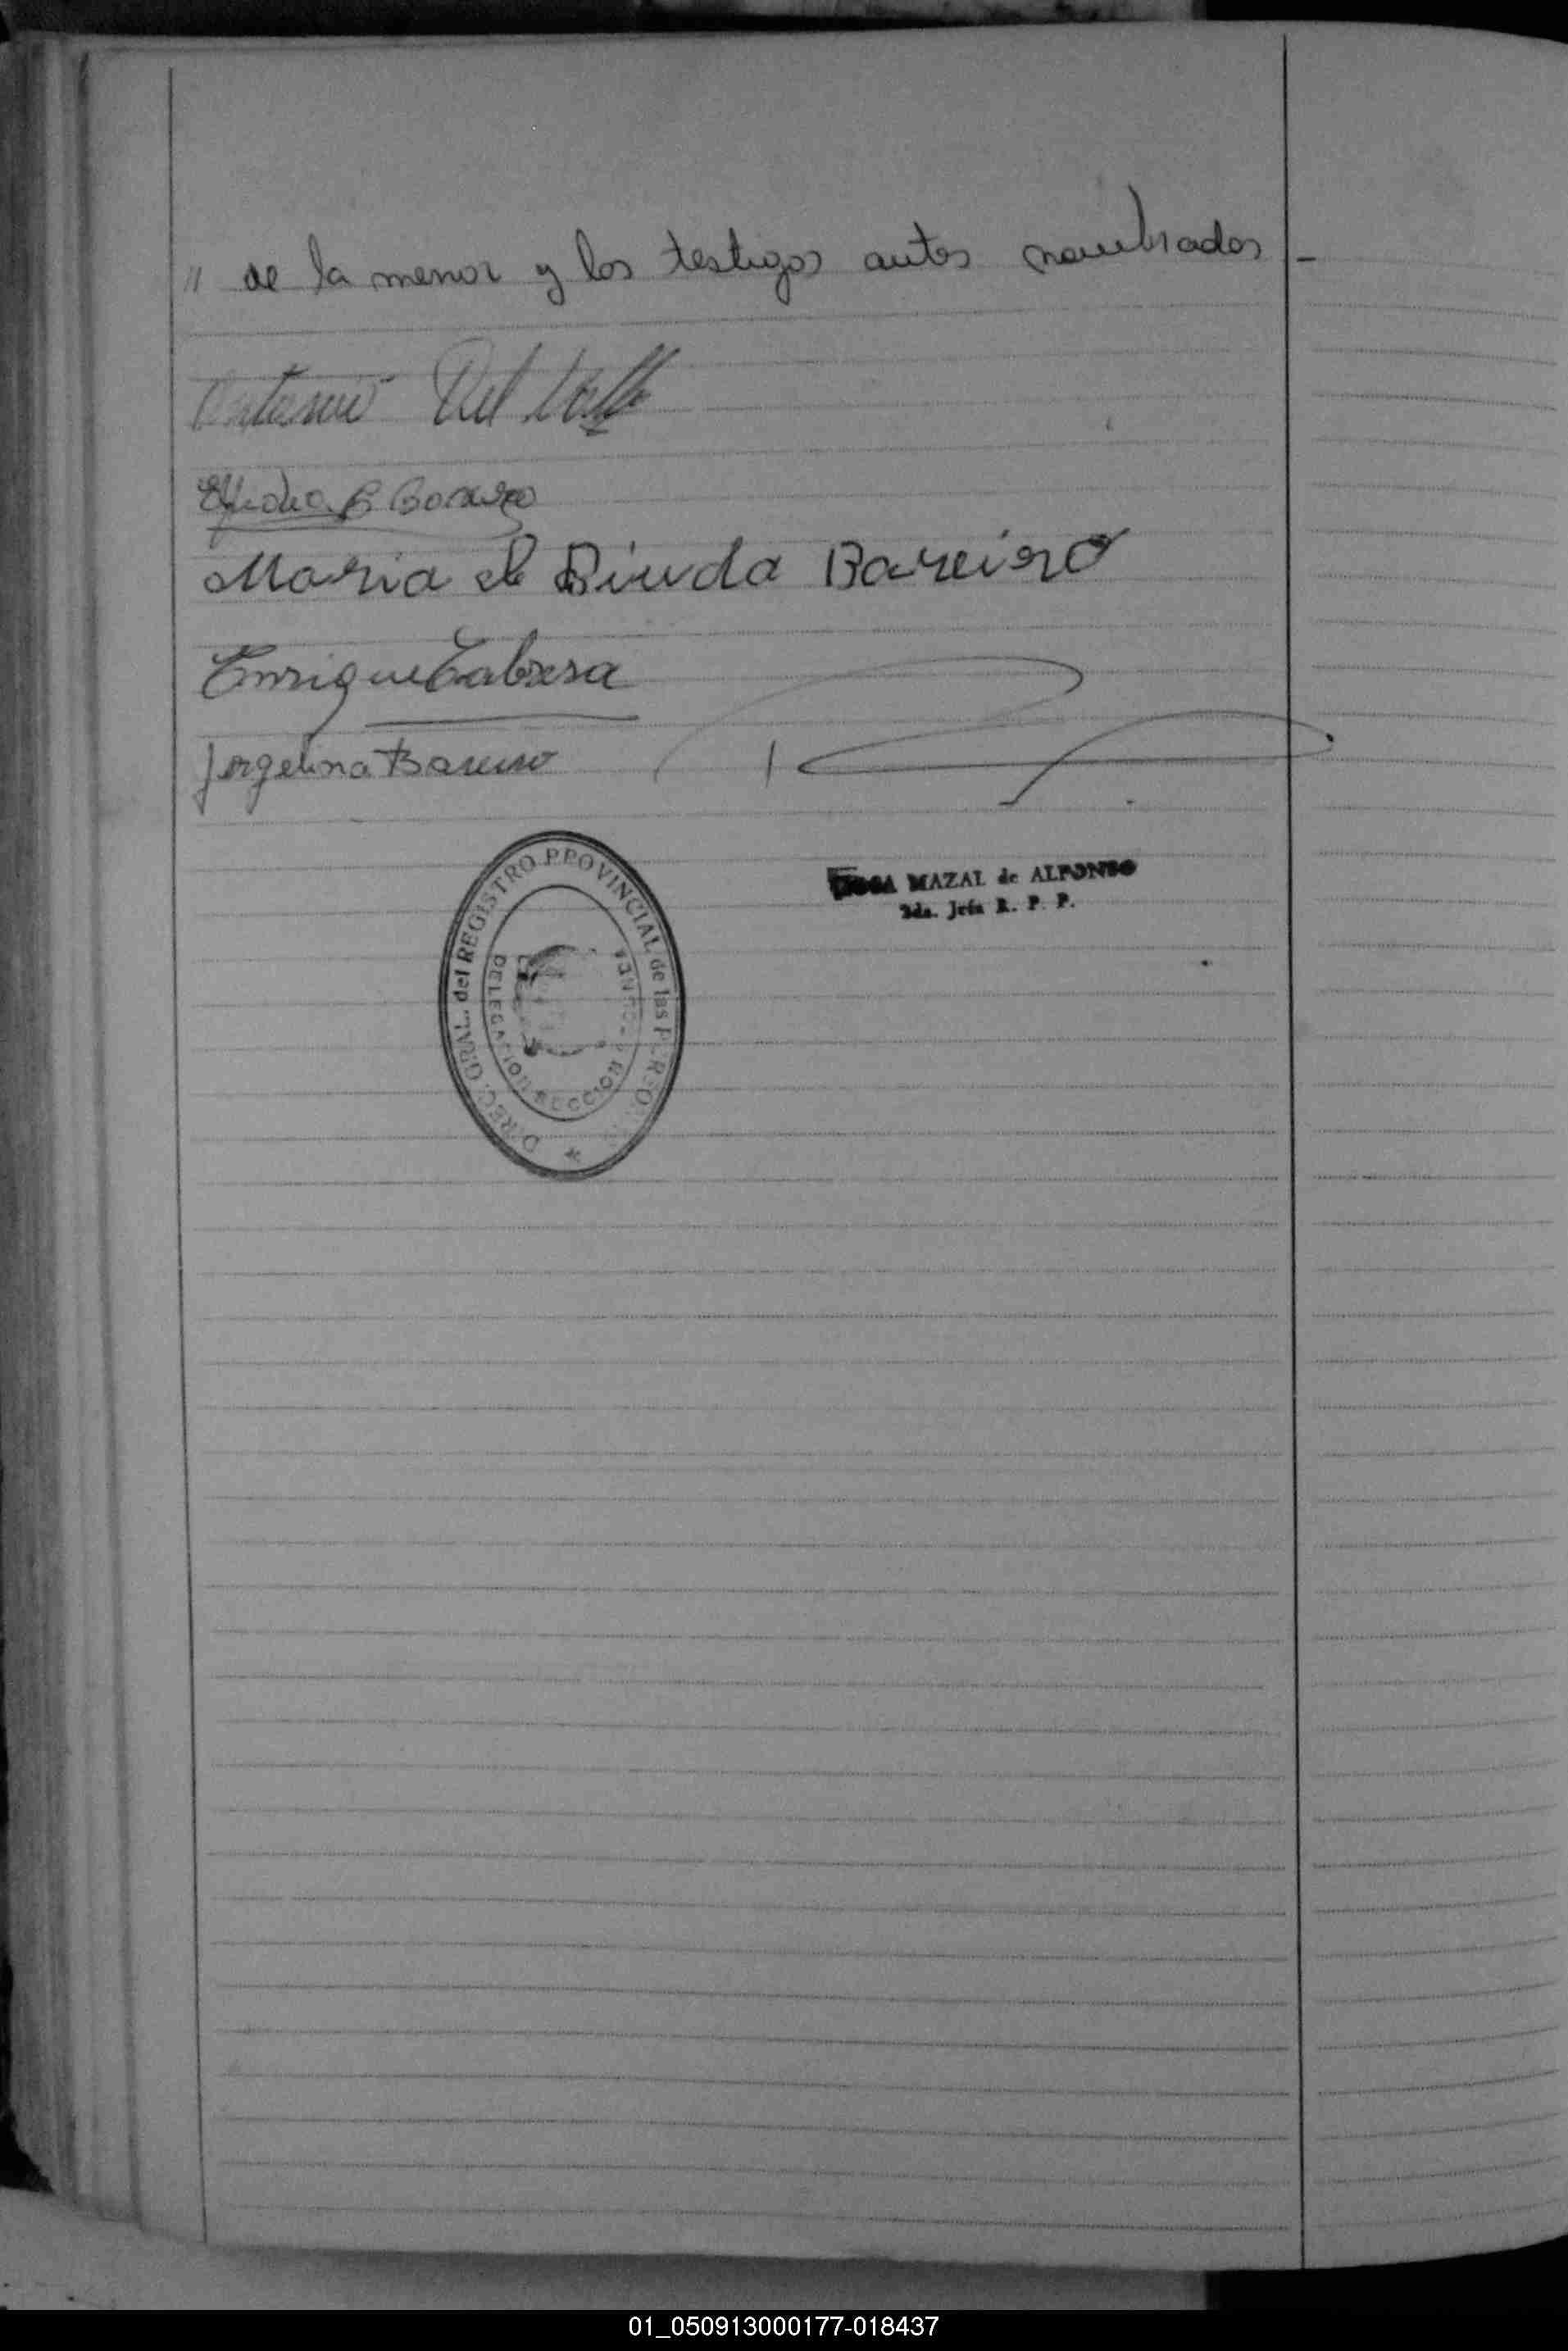 " de la menor y los testigos antes nombrados -
Antonio Del Valle
Bareiro
Maria de Binda Bareiro
Enrique Cabrera
Jorgelina Bareiro
MAZAL de ALFONSO
2da. Jefa R. P. P.
DIREC. GRAL. del REGISTRO PROVINCIAL de las PERSONAS
DELEGACION SECCION
*
01_050913000177-018437